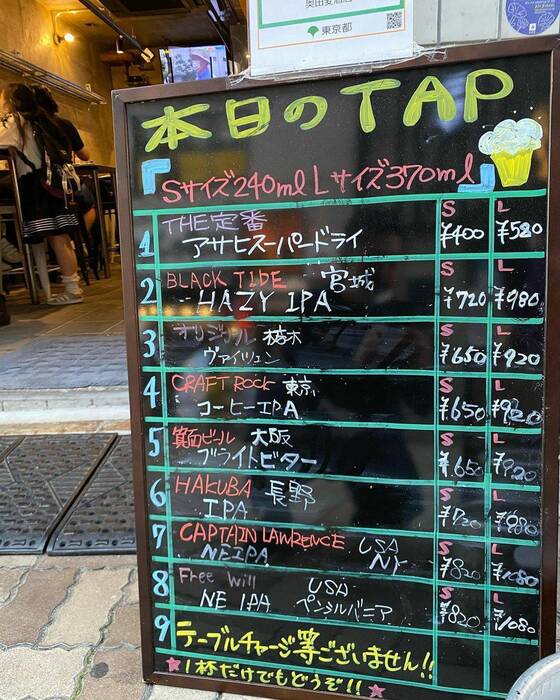 奥田麦酒店
東京都
本日のTAP
「Sサイズ240ml Lサイズ370ml」
1 THE定番 アサヒスーパードライ S ¥400 L ¥520
2 BLACK TIDE 宮城 HAZY IPA S ¥720 L ¥980
3 オリジナル 栃木 ヴァイツェン S ¥650 L ¥920
4 CRAFT ROCK 東京 コーヒーIPA S ¥650 L ¥920
5 箕面ビール 大阪 ブライトビター S ¥650 L ¥920
6 HAKUBA 長野 IPA S ¥720 L ¥980
7 CAPTAIN LAWRENCE USA NEIPA NY S ¥820 L ¥1080
8 Free Will USA NE IPA ペンシルバニア S ¥820 L ¥1080
9 テーブルチャージ等ございません!!
★1杯だけでもどうぞ!!★